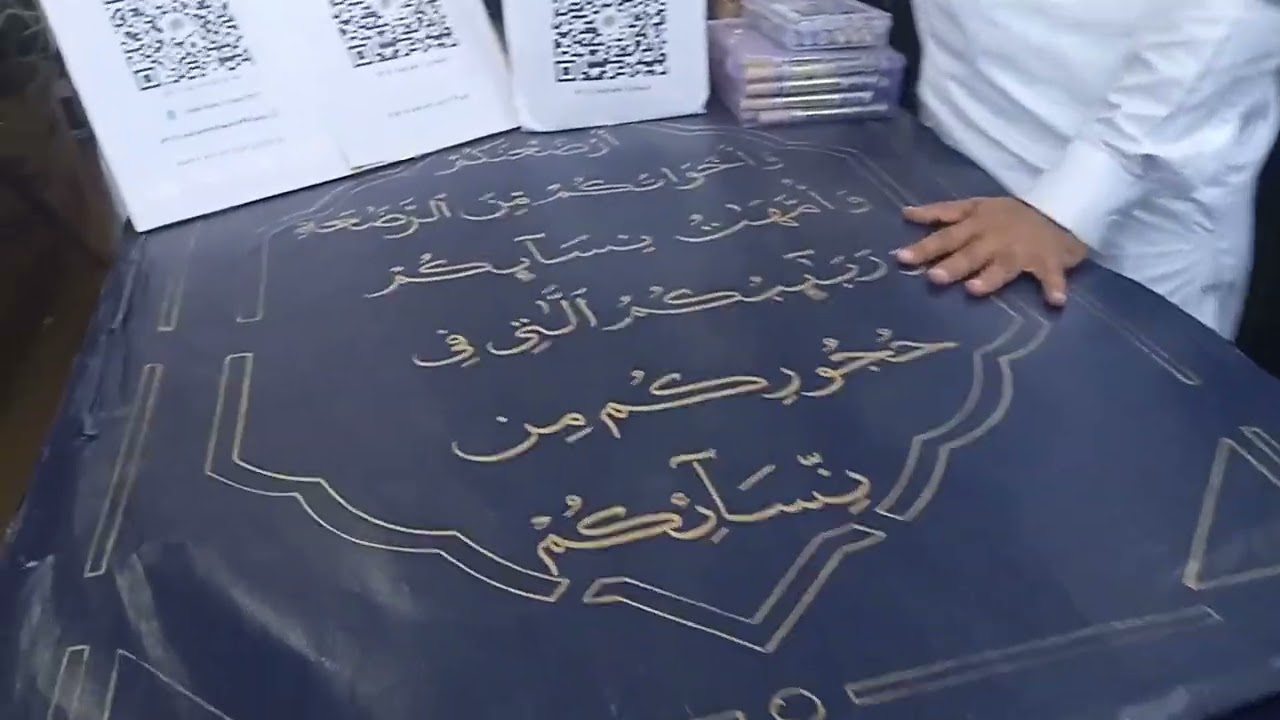 أَرْضَعْنَكُمْ
وَأَخَوَاتُكُم مِّنَ ٱلرَّضَٰعَةِ
وَأُمَّهَٰتُ نِسَآئِكُمْ
وَرَبَٰٓئِبُكُمُ ٱلَّٰتِى فِى
حُجُورِكُم مِّن
نِّسَآئِكُمُ